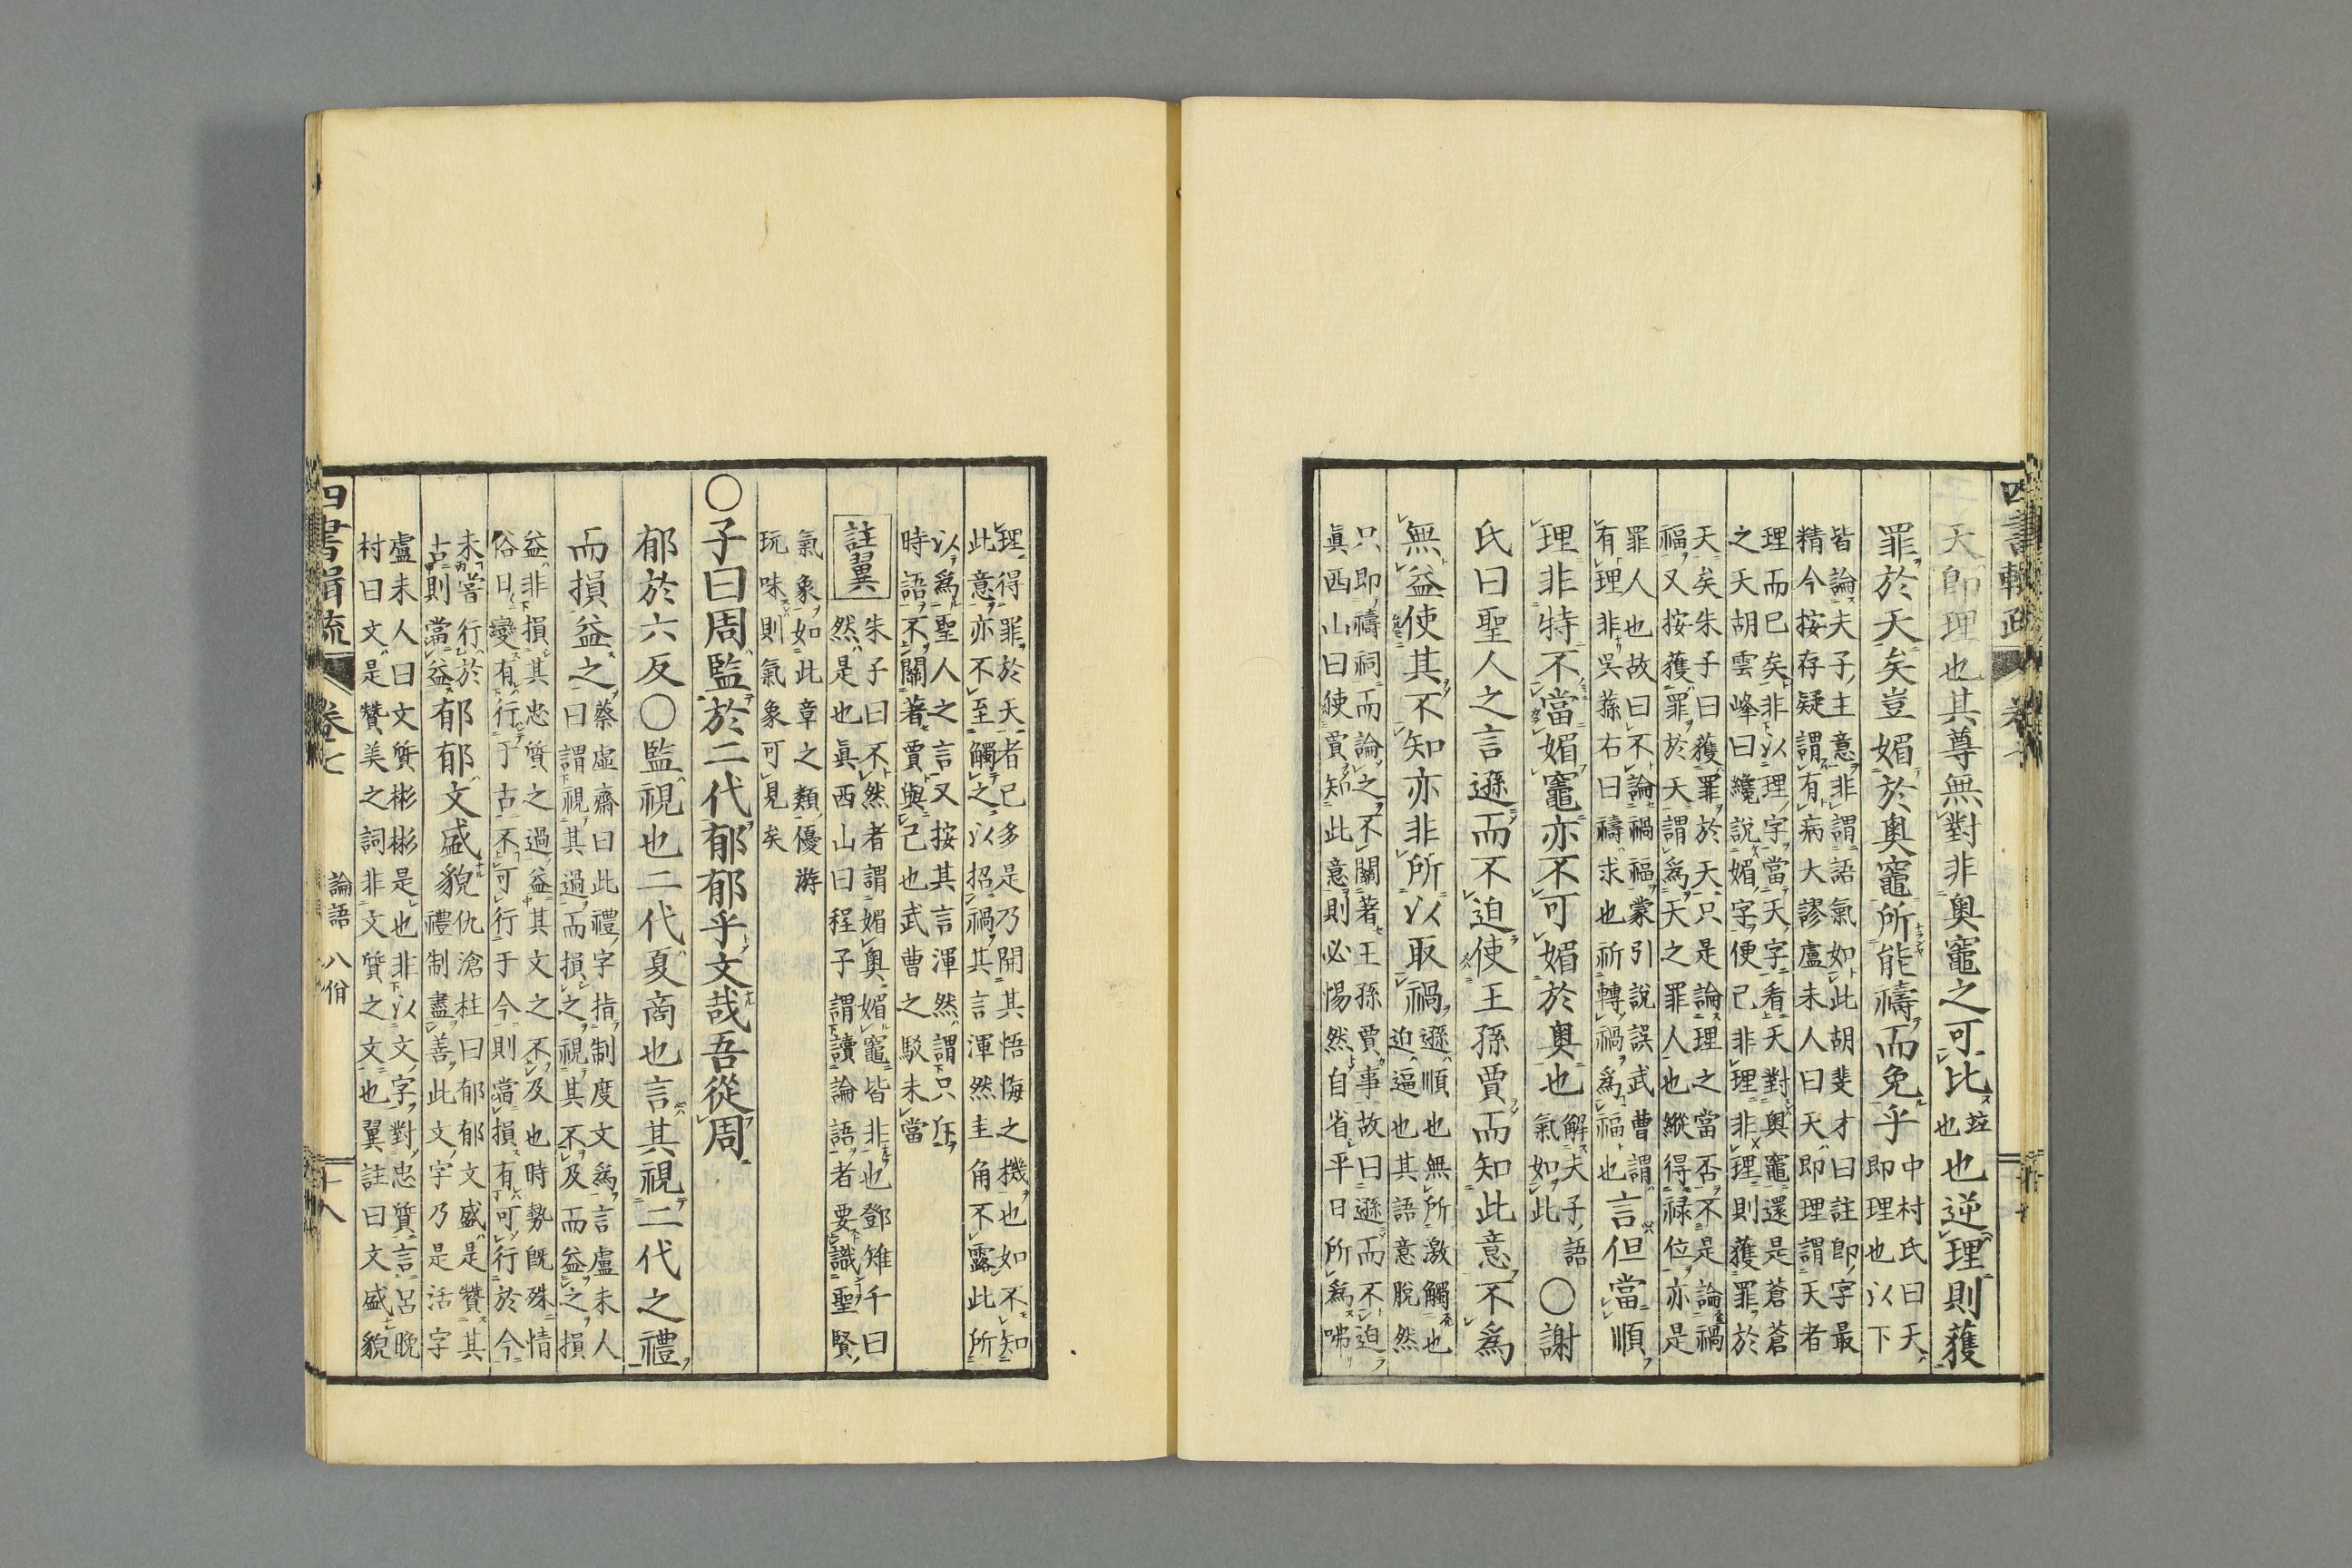 四書輯疏 卷七
天即理也其尊無對非奧竈之可比
竝也
也逆理則獲
罪於天矣豈媚於奧竈所能禱而免乎
中村氏曰天
即理也以下
皆論夫子主意非謂語氣如此胡斐才曰註即字最
精今按存疑謂有病大謬盧未人曰天即理謂天者
理而已矣非以理字當天字看天對奧竈還是蒼蒼
之天胡雲峰曰纔說媚字便已非理非理則獲罪於
天矣朱子曰獲罪於天只是論理之當否不是論禍
福又按獲罪於天謂為天之罪人也縱得祿位亦是
罪人也故曰不論禍福蒙引說誤武曹謂
有理非吳蓀右曰禱求也祈轉禍為福也
言但當順
理非特不當媚竈亦不可媚於奧也
解夫子語
氣如此
○謝
氏曰聖人之言遜而不迫使王孫賈而知此意不為
無益使其不知亦非所以取禍
遜順也無所激觸也
迫逼也其語意脫然
只即禱祠而論之不關著王孫賈事故曰遜而不迫
眞西山曰使賈知此意則必惕然自省平日所為咈
理得罪於天者已多是乃開其悟悔之機也如不知
此意亦不至觸之以招禍其言渾然圭角不露此所
以為聖人之言又按其言渾然謂只在
時語不關著賈與己也武曹之駁未當
註翼
朱子曰不然者謂媚奧媚竈皆非也鄧雉千曰
然是也眞西山曰程子謂讀論語者要識聖賢
氣象如此章之類優游
玩味則氣象可見矣
○子曰周監於二代郁郁乎文哉吾從周
郁於六反○監視也二代夏商也言其視二代之禮
而損益之
蔡虛齋曰此禮字指制度文為言盧未人
曰謂視其過而損之視其不及而益之損
益非損其忠質之過益其文之不及也時勢旣殊情
俗日變有行于古不可行于今則當損有可行於今
未嘗行於
古則當益
郁郁文盛貌
仇滄柱曰郁郁文盛是贊其
禮制盡善此文字乃是活字
盧未人曰文質彬彬是也非以文字對忠質言呂晚
村曰文是贊美之詞非文質之文也翼註曰文盛貌
四書輯疏 卷七 論語 八佾 十八